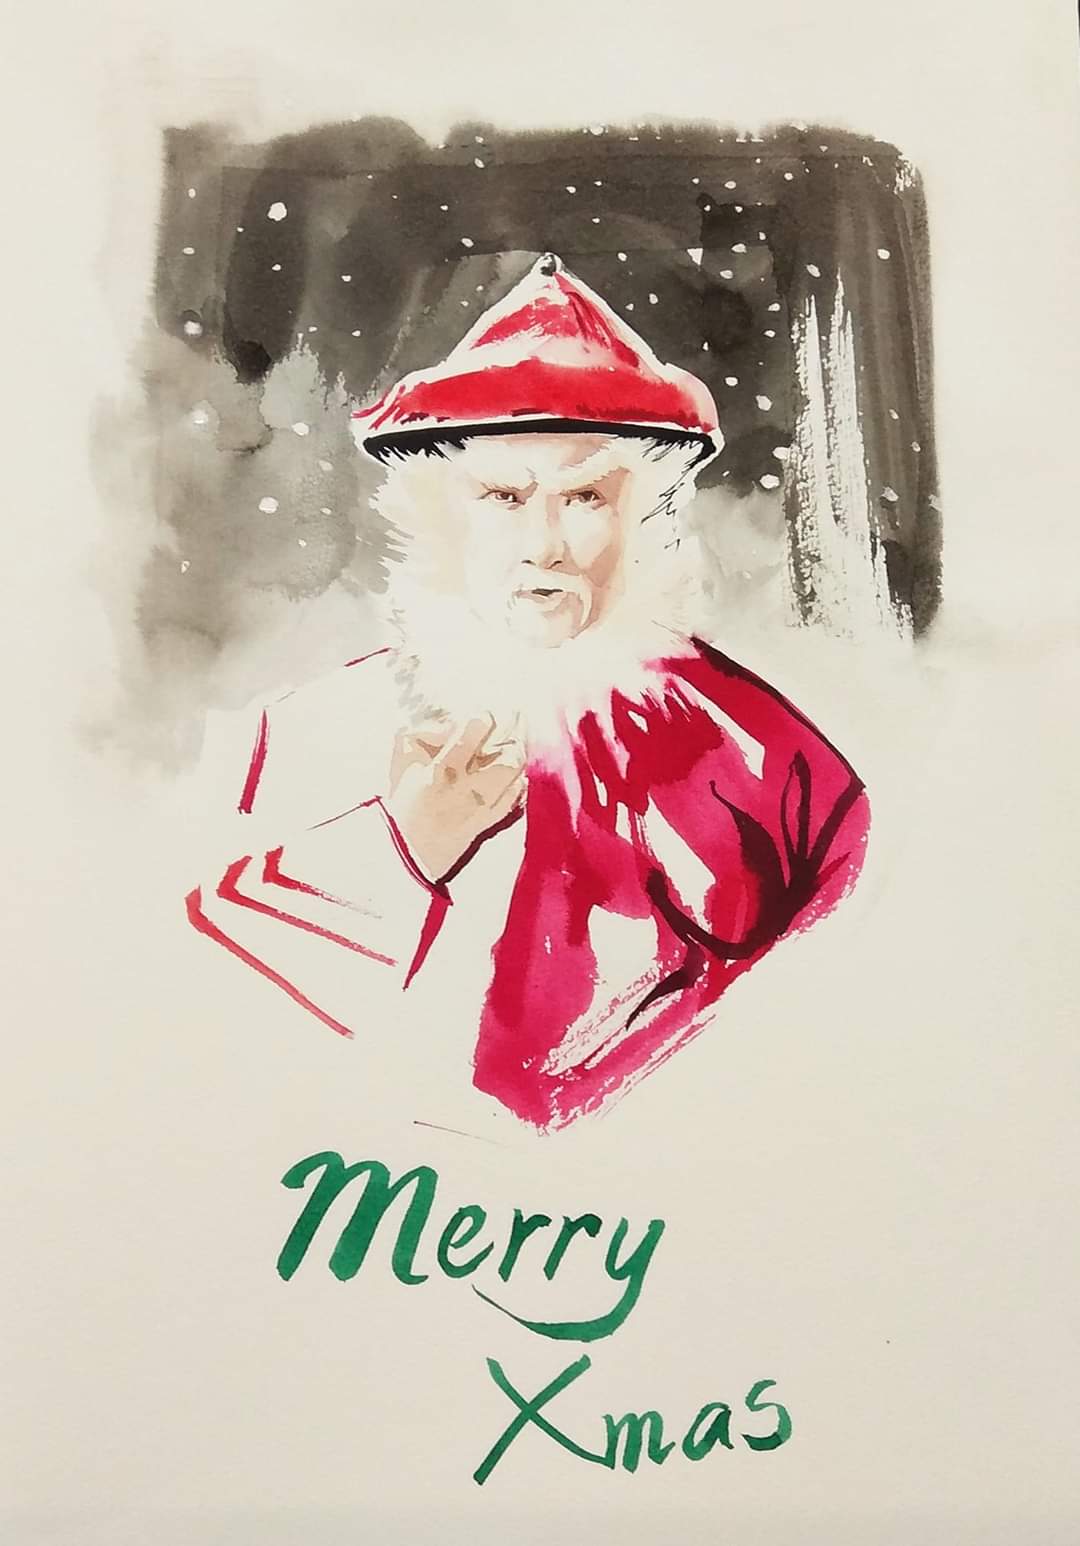 Merry
Xmas